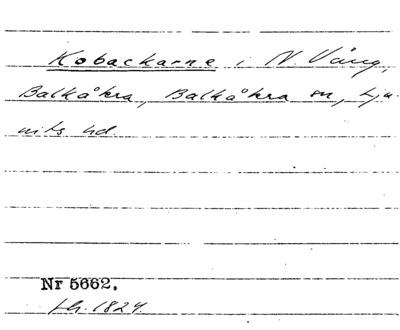 Kobackarne i N. Vång,
Balkåkra, Balkåkra sn, Lju-
nits hd.
Nr 5662.
fh. 1824.